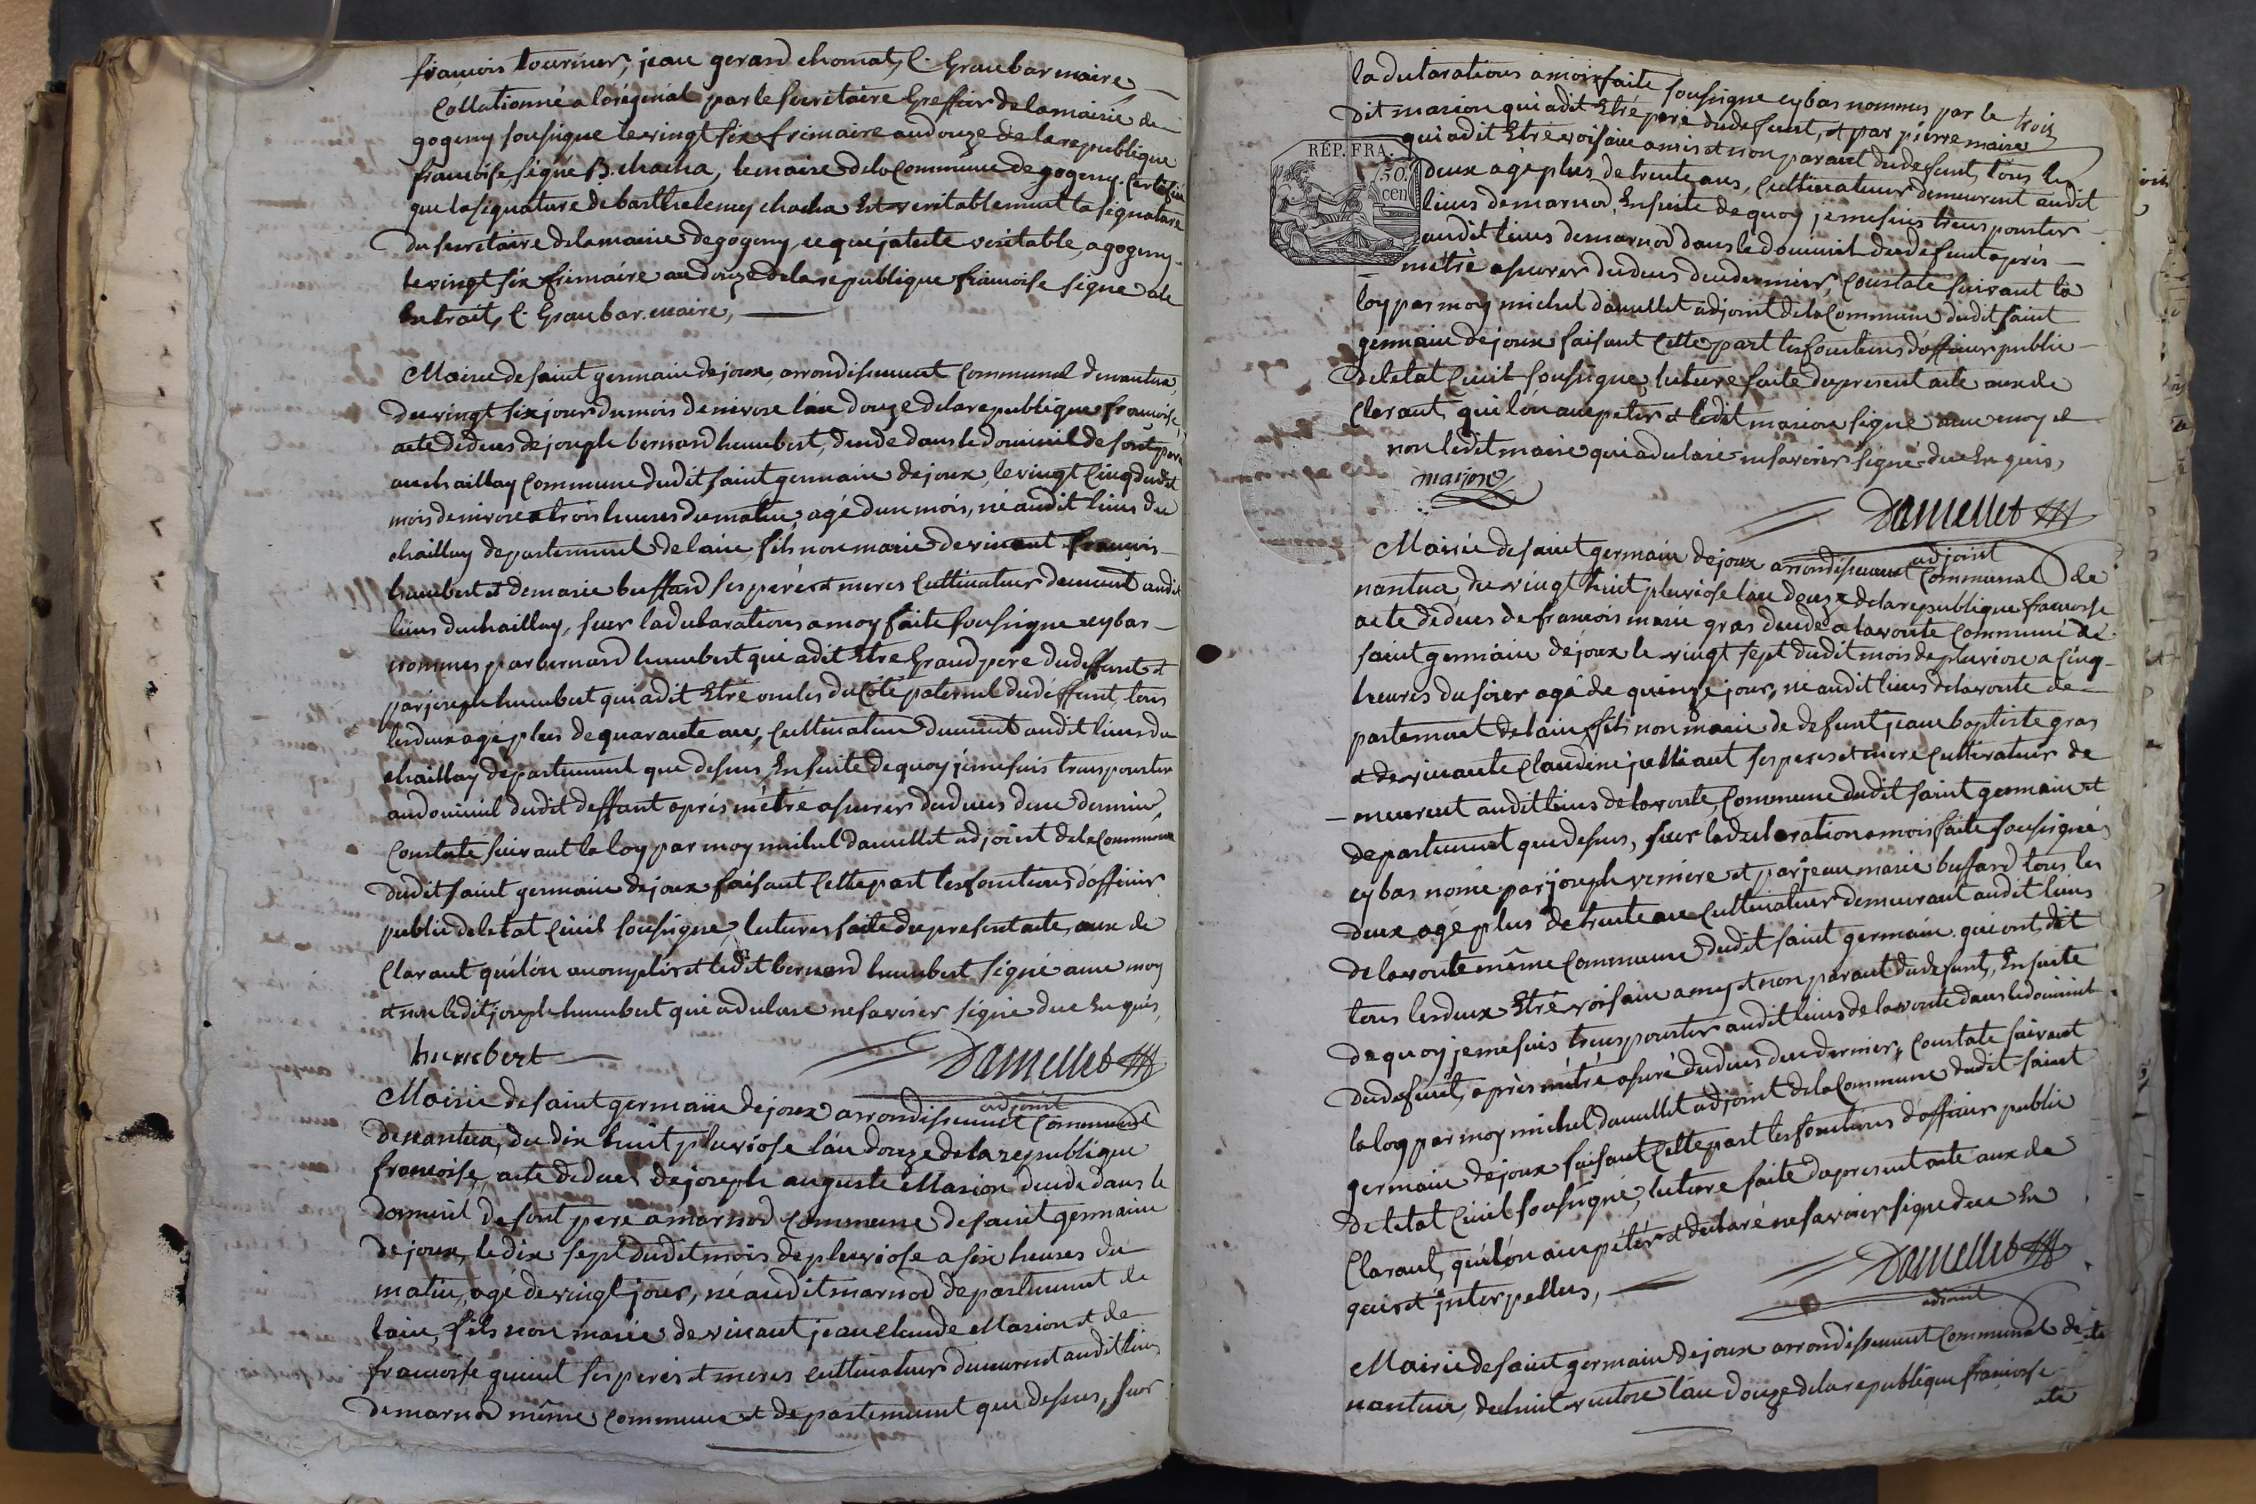 françois tournier, jean gerard chomat, C. Graubar maire
Collationné a lorégénal par le secretaire Greffier de la mairie de
gogeny sousigne le vingt six frimaire an douze de la republique
francoise signe B. chacha, le maire de la Commune de gogeny. Certifie
que la signature de barthelemy chacha Est veritablement la signature
du secretaire de la mairie de gogeny, ce que jateste veritable, a gogeny
le vingt six frimaire an douze de la republique francoise signe a le
Extrait, C. Graubar. maire,
Mairie de saint germain de joux arrondissement Communal de nantua
du vingt six jour du mois de nivose l'an douze de la republique francoise,
acte de deces de joseph bernard humbert, decede dans le domicil de sont pere
au chaillay Commune dudit saint germain de joux, le vingt Cinq dudit
mois de nivose a trois heures du matin, agé d'un mois, né audit lieux du
chaillay departement de lain, fils non marié de vivant francois
humbert et de marie buffard ses peres et meres Cultivateur demeurt audit
lieux du chaillay, sur la declarations a moy faite sousigne cy bas
nommes par bernard humbert qui a dit Etre Grand pere du deffunt et
par joseph humbert qui a dit Etré oncles du Côté paternel du déffunt, tous
les deux agé plus de quarante ans, Cultivateur demeurt audit lieux du
chaillay departement que desus, Ensuite de quoy je me suis transpourter
au domicil dudit deffant aprés m'etré asurer du deces du dernier,
Constate suivant la loy par moy michel damellet adjoint de la Commune
dudit saint germain de joux faisant Cette part les fonctions d'officier
public de letat Civil sousigne, lecture faite du present acte, aux de
Claraut qu'il l'on acomplir et ledit bernard humbert signé avec moy
et non ledit joseph humbert qui a declare ne savoir signé de ce Enquis,
humbert Damellet
adjoint
Mairie de saint germain de joux arrondissement Communal
de nantua, du dix huit pluviose l'an douze de la republique
francoise, acte de deces de joseph auguste Marion decede dans le
domicil de sont pere a marnod Commune de saint germain
de joux, le dix sept dudit mois de pluviose a six heures du
matin, agé de vingt jours, né audit marnod departement de
lain, fils non marié de vivant jean claude Marion et de
francoise quinet ses peres et meres cultivateur demeurent audit lieux
de marnod même commune et departement que desus, sur
trois
la declarations a moi faite sousigne cy bas nommes par le
dit marion qui a dit Etré peré du defunt, et par pierre maire
qui a dit Etré voisaine amis et non parant du defunt, tous les
RÉP. FRA.
50.
cen
deux agé plus de trente ans, Cultivateur demeurent audit
lieux de marnod, Ensuite de quoy je me suis transpourter
audit lieux de marnod dans le domicil du defunt aprés
m'etré asurer du deces du dernier, Constate suivant la
loy par moy michel damellet adjoint de la Commune dudit saint
germain de joux faisant Cette part les fonctions d'officier public
de letat Civil sousigne, lecture faite du present acte aux de
Claraut, quil l'on acepeter et ledit marion signé avec moy et
non ledit maire qui a declaré ne savoir signé de ce Enquis,
marion
Damellet
adjoint
Mairie de saint germain de joux arrondissement Communal de
nantua, du vingt huit pluviose l'an douze de la republique francoise
acte de deces de francois marie gras decede a lavoute Commune de
saint germain de joux le vingt sept dudit mois de pluviose a Cinq
heures du soir agé de quinze jour, né audit lieux de lavoute de
partement de lain, fils non marié de defunt jean baptiste gras
et de vivante Claudine julliant ses peres et mere Cultivateur de
meurent audit lieux de lavoute, Commune dudit saint germain et
departement que desus, sur la declarations a moi faite sousigne
cy bas nomé par joseph veniere et par jean marie buffard tous les
deux agé plus de trente ans Cultivateur demeurant audit lieux
de lavoute même Commune dudit saint germain qui ont dit
tous les deux Etré voisain amy et non parant du defunt, Ensuite
de quoy je me suis transpourter audit lieux de lavoute dans le domicil
du defunt, aprés m'etré asuré du deces du dernier, Constate suivant
la loy par moy michel damellet adjoint de la Commune dudit saint
germain de joux faisant Cette part les fonctions d'officier public
de letat Civil sousigné, lecture faite du present acte aux de
Claraut, qu'il l'on acepeter et declaré ne savoir signe de ce En
quis et interpelles,
Damellet
adjoint
Mairie de saint germain de joux arrondissement Communal de
nantua, du huit ventose l'an douze de la republique francoise